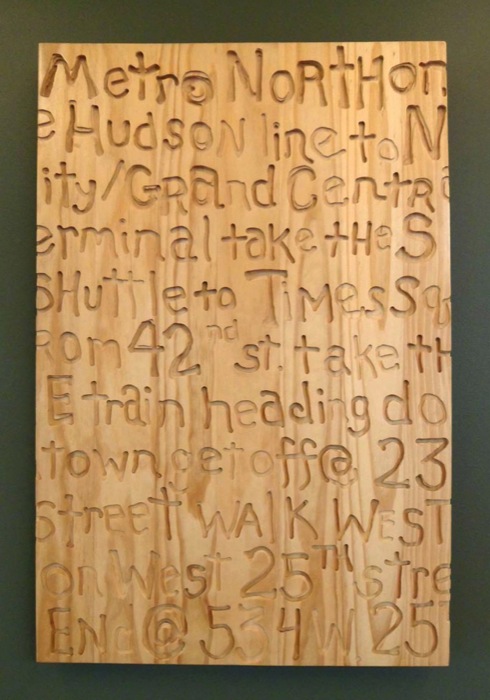 Metro NoRtHon
e Hudson line to N
ity/GRand CentR
erminal take tHe S
SHuttle to Times Sq
rom 42nd st. take tH
E train heading do
town get off @ 23
Street WAlK WesT
on West 25TH stre
End @ 534 W 25